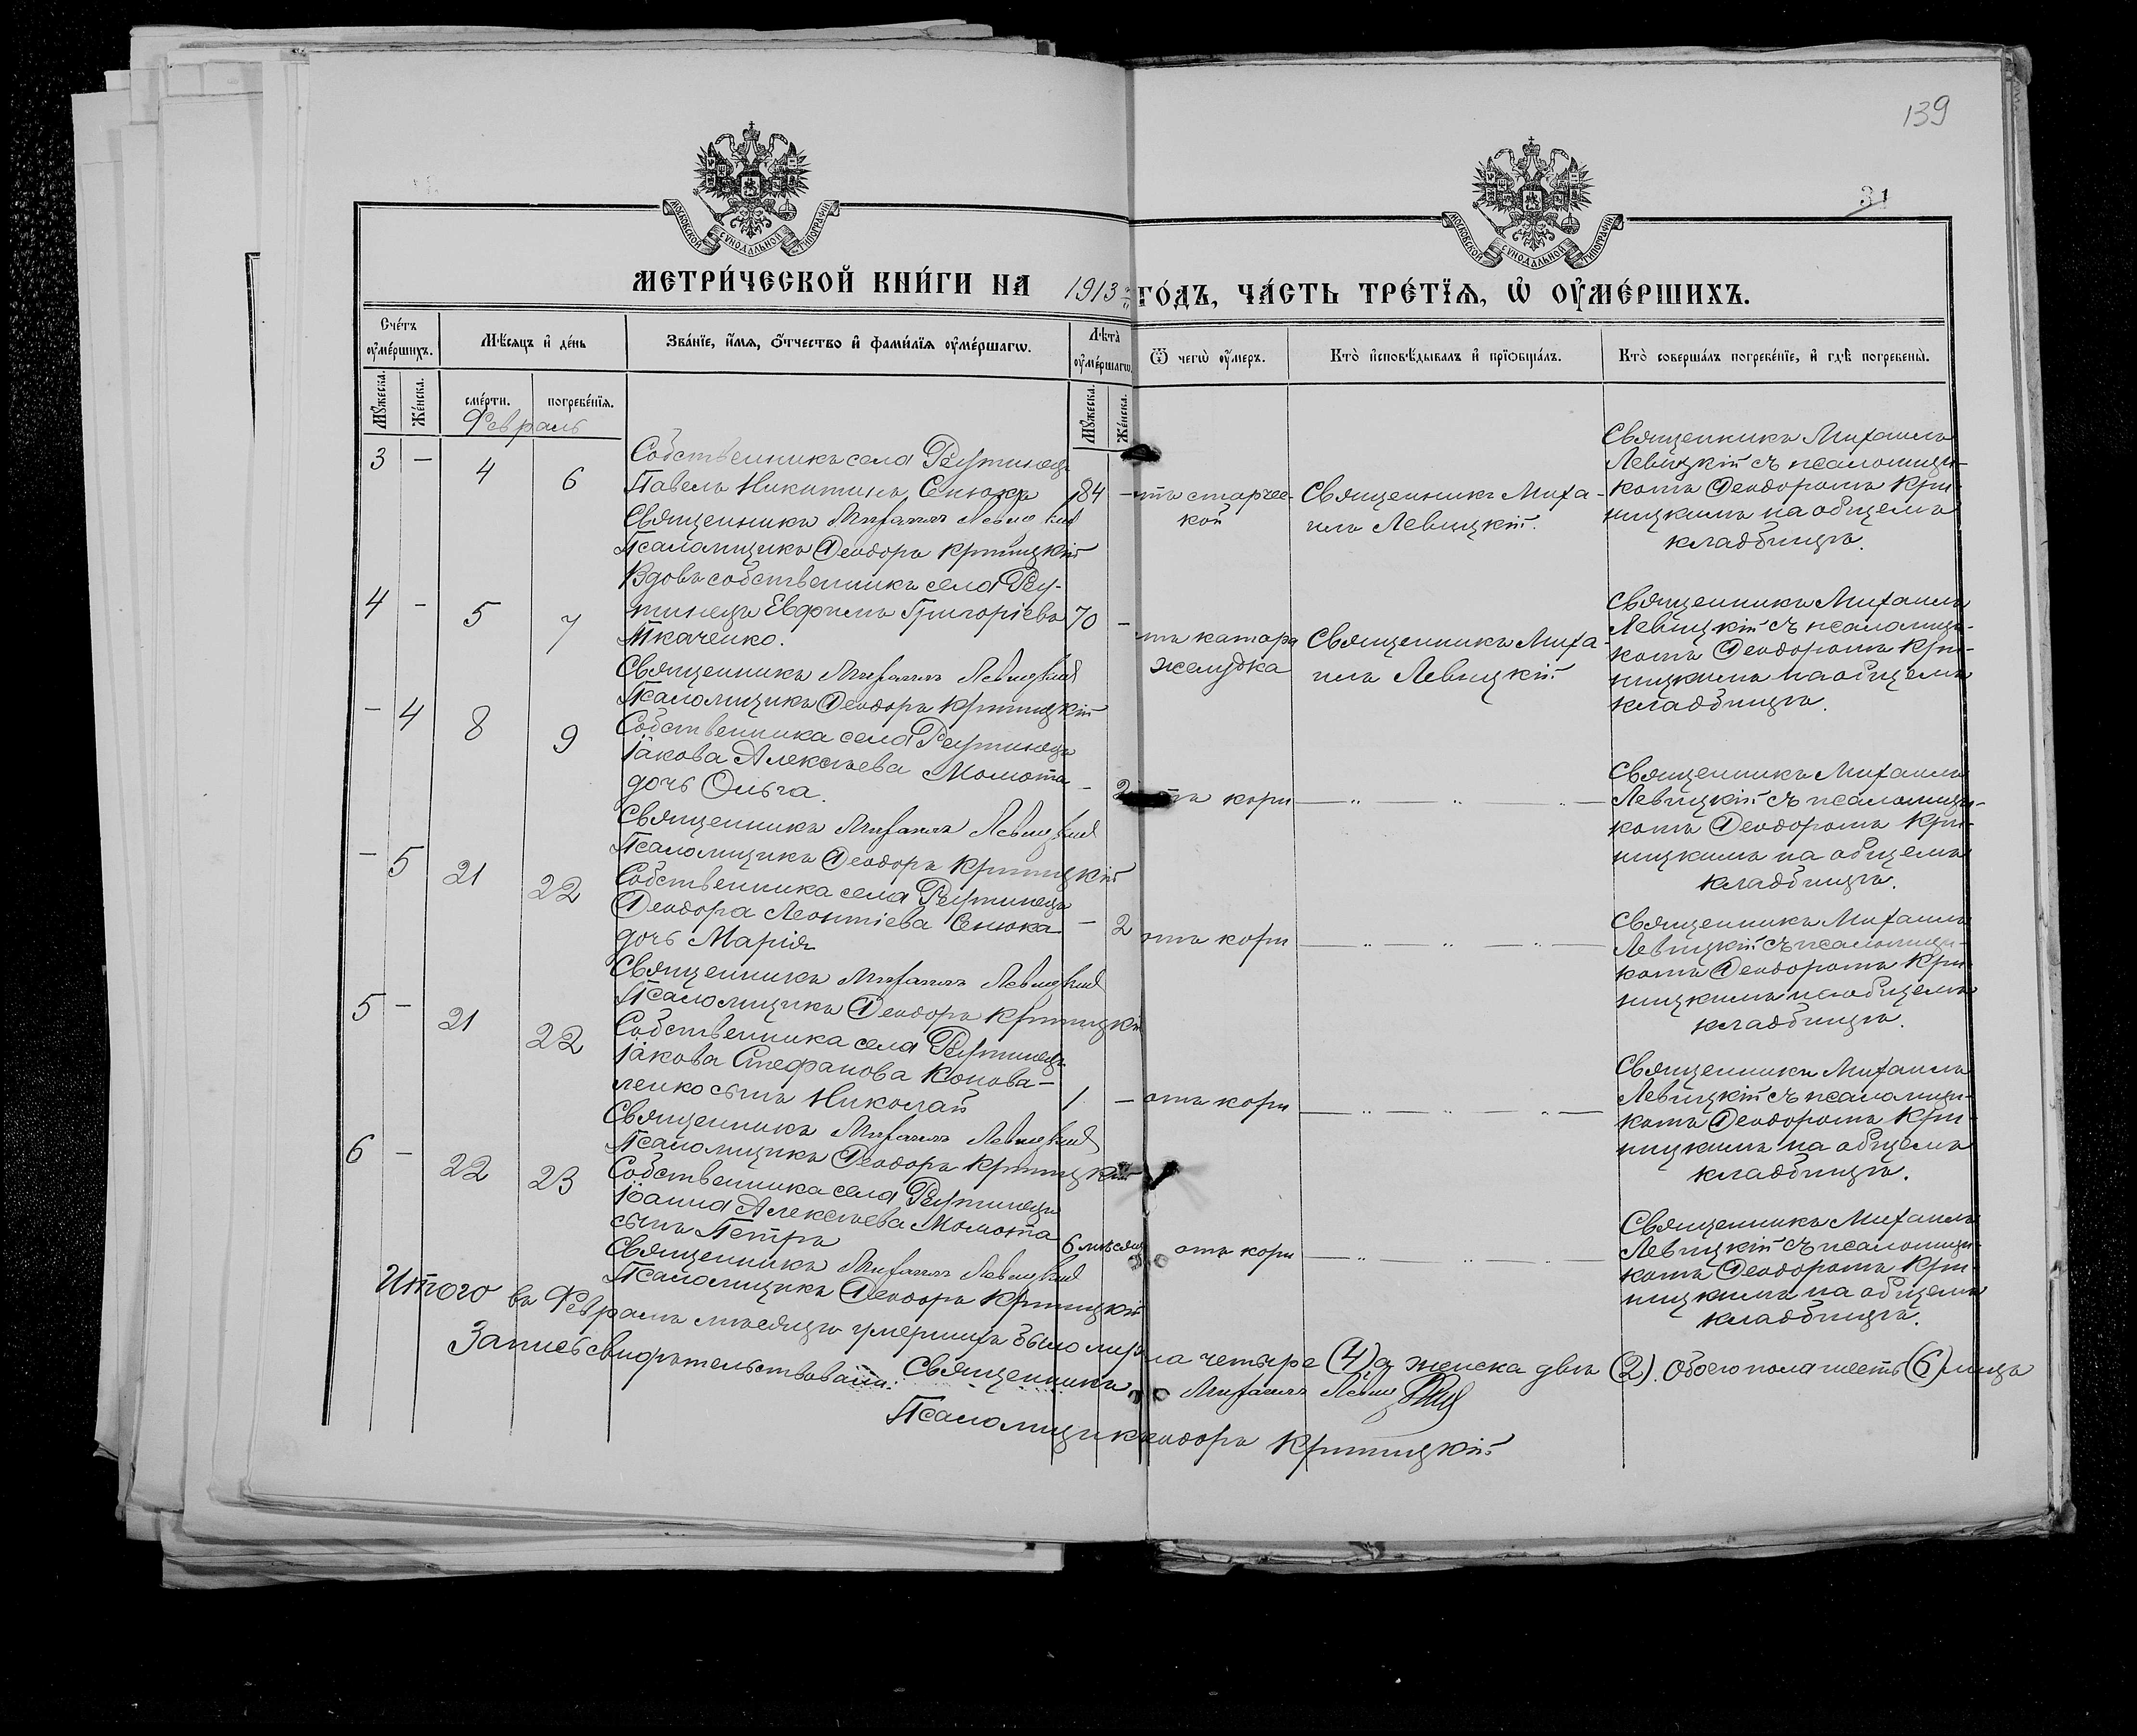 139
31
МОСКОВСКОЙ СУНОДАЛЬНОЙ ТИПОГРАФІИ
МОСКОВСКОЙ СУНОДАЛЬНОЙ ТИПОГРАФІИ
МЕТРИ́ЧЕСКОЙ КНИ́ГИ НА 1913 ГО́ДЪ, ЧА́СТЬ ТРЕ́ТЇѦ, Ѡ҆ ОУ҆МЕ́РШИХЪ.
Сче́тъ оу҆ме́ршихъ.
Мѣ́сѧцъ и҆ де́нь
Зва́нїе, и҆́мѧ, ѻ҆́тчество и҆ фами́лїѧ оу҆ме́ршагѡ.
Лѣ̑та̀ оу҆ме́ршагѡ.
Ѿ чегѡ̀ оу҆́меръ.
Кто̀ и҆сповѣ́дывалъ и҆ прїѻбща́лъ.
Кто̀ соверша́лъ погребе́нїе, и҆ гдѣ̀ погребены̀.
Мꙋ́жеска.
Же́нска.
сме́рти.
погребе́нїѧ.
Мꙋ́жеска.
Же́нска.
Февраль
3 — 4 6
Собственникъ села Реутинецъ
Павелъ Никитинъ Сенюкъ 84 —
Священникъ Михаилъ Левицкий
Псаломщикъ Ѳеодоръ Криницкій
отъ старчес-
кой
Священникъ Миха-
илъ Левицкій.
Священникъ Михаилъ
Левицкій съ псаломщи-
комъ Ѳеодоромъ Кри-
ницкимъ на общемъ
кладбищѣ.
4 — 5 7
Вдовъ собственникъ села Реу-
тинецъ Евфимъ Григоріевъ 70 —
Ткаченко.
Священникъ Михаилъ Левицкий
Псаломщикъ Ѳеодоръ Криницкій
отъ катара
желудка
Священникъ Миха-
илъ Левицкій.
Священникъ Михаилъ
Левицкій съ псаломщи-
комъ Ѳеодоромъ Кри-
ницкимъ на общемъ
кладбищѣ.
— 4 8 9
Собственника села Реутинецъ
Іакова Алексѣева Момота
дочь Ольга. — 2
Священникъ Михаилъ Левицкий
Псаломщикъ Ѳеодоръ Криницкій
отъ кори — „ — „ — „ —
Священникъ Михаилъ
Левицкій съ псаломщи-
комъ Ѳеодоромъ Кри-
ницкимъ на общемъ
кладбищѣ.
— 5 21 22
Собственника села Реутинецъ
Ѳеодора Леонтіева Сенюка
дочь Марія — 2
Священникъ Михаилъ Левицкий
Псаломщикъ Ѳеодоръ Криницкій
отъ кори — „ — „ — „ —
Священникъ Михаилъ
Левицкій съ псаломщи-
комъ Ѳеодоромъ Кри-
ницкимъ на общемъ
кладбищѣ.
5 — 21 22
Собственника села Реутинецъ
Іакова Стефанова Конова-
ленко сынъ Николай 1 —
Священникъ Михаилъ Левицкий
Псаломщикъ Ѳеодоръ Криницкій
отъ кори — „ — „ — „ —
Священникъ Михаилъ
Левицкій съ псаломщи-
комъ Ѳеодоромъ Кри-
ницкимъ на общемъ
кладбищѣ.
6 — 22 23
Собственника села Реутинецъ
Іоанна Алексѣева Момота
сынъ Петръ 6 мѣсяц
Священникъ Михаилъ Левицкий
Псаломщикъ Ѳеодоръ Криницкій
отъ кори — „ — „ — „ —
Священникъ Михаилъ
Левицкій съ псаломщи-
комъ Ѳеодоромъ Кри-
ницкимъ на общемъ
кладбищѣ.
Итого въ Февралѣ мѣсяцѣ умершихъ было муж пола четыре (4) а женска двѣ (2). Обоего пола шесть (6) лицъ
Запись свидѣтельствовали: Священникъ Михаилъ Левицкий
Псаломщикъ Ѳеодоръ Криницкій